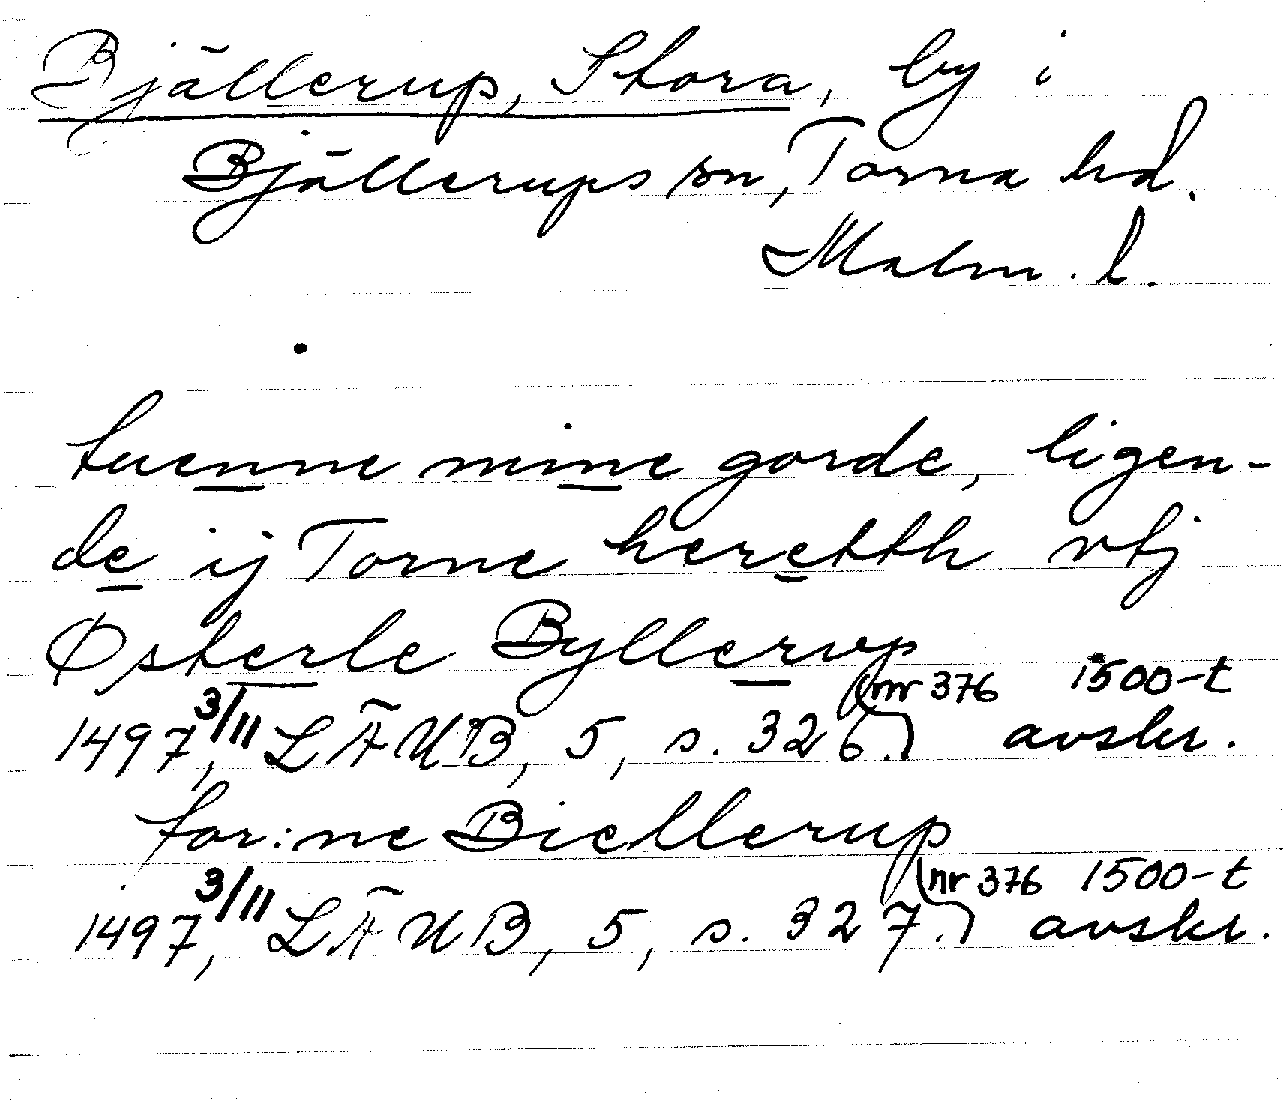 Bjällerup, Stora, by i
Bjällerups sn, Torna hd.
Malm. l.
tuenne mine gorde, ligen-
de ij Torne heretth vtj
Østerle Byllerup
1497 3/11, LÄUB, 5, s. 326. (nr 376) 1500-t avskr.
for:ne Biellerup
1497 3/11, LÄUB, 5, s. 327. (nr 376) 1500-t avskr.